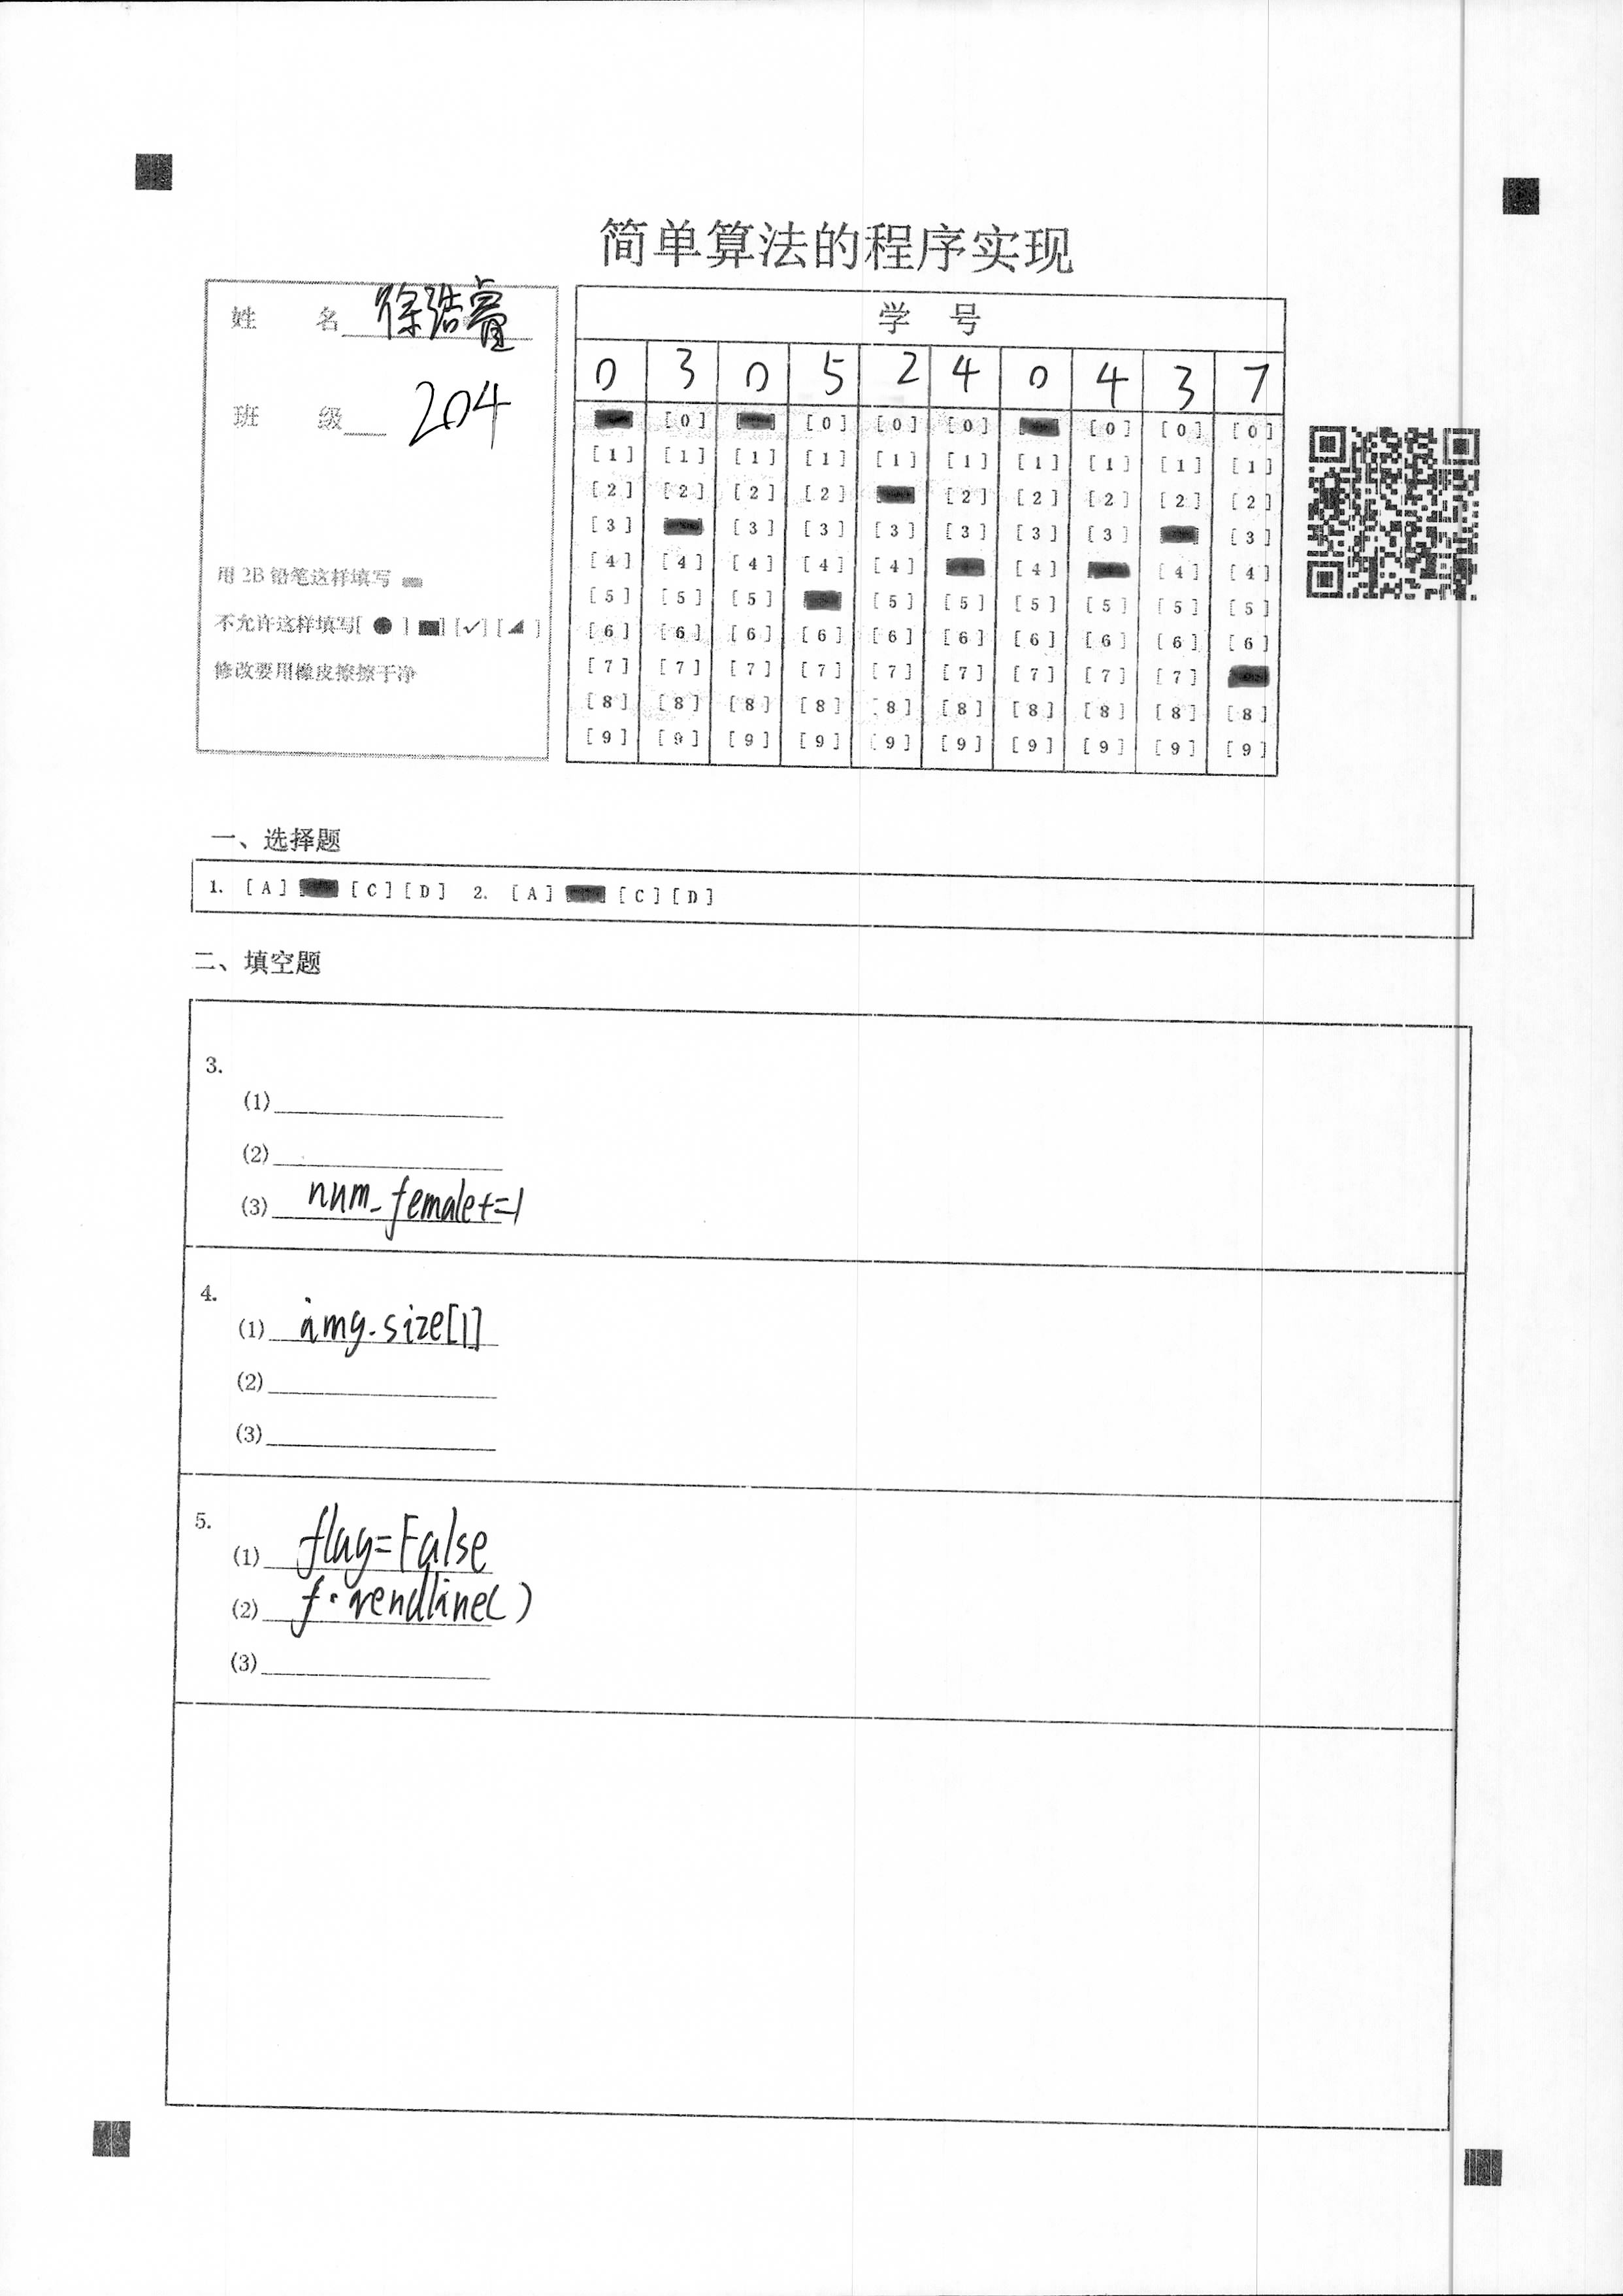 简单算法的程序实现
姓 名 徐浩睿
班 级 204
用 2B 铅笔这样填写
不允许这样填写[ ● ] [■] [✓] [◢ ]
修改要用橡皮擦擦干净
学 号
0 3 0 5 2 4 0 4 3 7
[0] [0] [0] [0] [0] [0] [0]
[1] [1] [1] [1] [1] [1] [1] [1] [1] [1]
[2] [2] [2] [2] [2] [2] [2] [2] [2]
[3] [3] [3] [3] [3] [3] [3] [3]
[4] [4] [4] [4] [4] [4] [4] [4]
[5] [5] [5] [5] [5] [5] [5] [5] [5]
[6] [6] [6] [6] [6] [6] [6] [6] [6] [6]
[7] [7] [7] [7] [7] [7] [7] [7] [7]
[8] [8] [8] [8] [8] [8] [8] [8] [8] [8]
[9] [9] [9] [9] [9] [9] [9] [9] [9] [9]
一、选择题
1. [A] [C] [D] 2. [A] [C] [D]
二、填空题
3.
(1)
(2)
(3) num_female+=1
4.
(1) img.size[1]
(2)
(3)
5.
(1) flag=False
(2) f.readline()
(3)